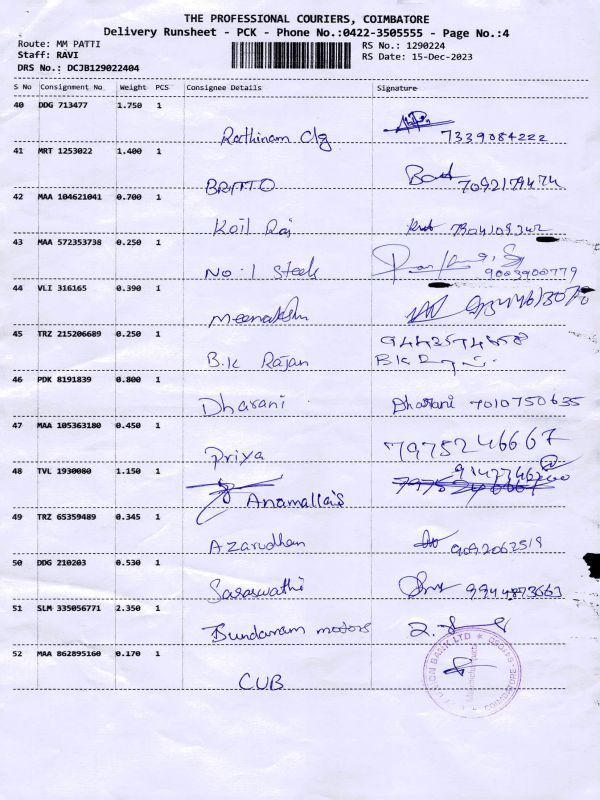 THE PROFESSIONAL COURIERS, COIMBATORE
Delivery Runsheet - PCK - Phone No.:0422-3505555 - Page No.:4
Route: MM PATTI RS No.: 1290224
Staff: RAVI RS Date: 15-Dec-2023
DRS No.: DCJB129022404
S No Consignment No Weight PCS Consignee Details Signature
40 DDG 713477 1.750 1
Rathinam Clg 7339084222
41 MRT 1253022 1.400 1
BRITTO 7092179474
42 MAA 104621041 0.700 1
Koil Raj 7904109342
43 MAA 572353738 0.250 1
No:1 Steels 9003900779
44 VLI 316165 0.390 1
Meenakshi
45 TRZ 215206689 0.250 1
9442574858
B.K Rajan
46 PDK 8191839 0.800 1
Dharani Dharani 7010750635
47 MAA 105363180 0.450 1
Priya 7975246667
48 TVL 1930080 1.150 1
Anamallais
49 TRZ 65359489 0.345 1
Azarudhan 9092062519
50 DDG 210203 0.530 1
Saraswathi 9944873663
51 SLM 335056771 2.350 1
Bundaram motors
52 MAA 862895160 0.170 1
CUB
UNION BANK LTD
COIMBATORE